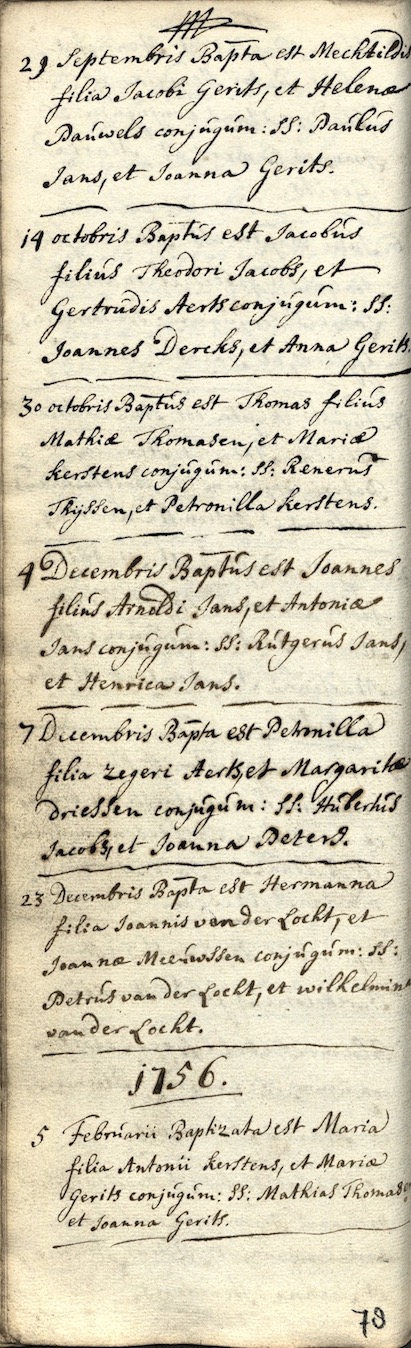 29 Septembris Bapta est Mechtildis
filia Jacobi Gerits, et Helenæ
Pauwels conjugum: SS: Paulus
Jans, et Joanna Gerits.
14 octobris Baptus est Jacobus
filius Theodori Jacobs, et
Gertrudis Aerts conjugum: SS:
Joannes Dercks, et Anna Gerits.
30 octobris Baptus est Thomas filius
Mathiæ Thomasen, et Mariæ
Kerstens conjugum: SS: Renerus
Thyssen, et Petronilla Kerstens.
4 Decembris Baptus est Joannes
filius Arnoldi Jans, et Antoniæ
Jans conjugum: SS: Rutgerus Jans,
et Henrica Jans.
7 Decembris Bapta est Petronilla
filia Zegeri Aerts, et Margaritæ
driessen conjugum: SS: Hubertus
Jacobs, et Joanna Peters.
23 Decembris Bapta est Hermanna
filia Joannis van der Locht, et
Joannæ Meeuwssen conjugum: SS:
Petrus van der Locht, et wilhelmina
van der Locht.
1756.
5 Februarii Baptizata est Maria
filia Antonii Kerstens, et Mariæ
Gerits conjugum: SS: Mathias
et Joanna Gerits.
78